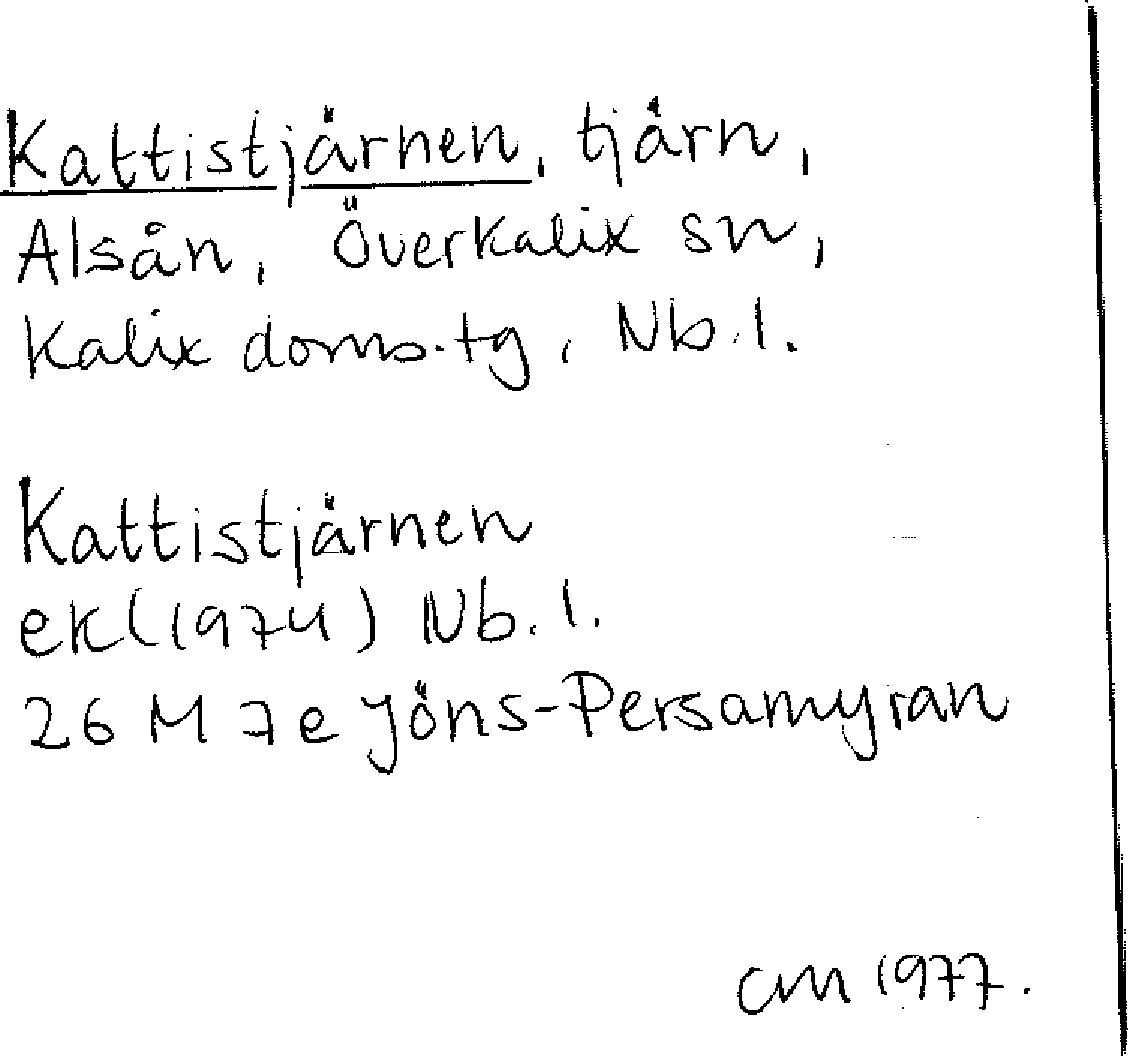 Kattistjärnen, tjärn,
Alsån, Överkalix sn,
Kalix doms.tg, Nb.l.
Kattistjärnen
ek(1974) Nb.l.
26 M 7e Jöns-Persamyran
CM 1977.